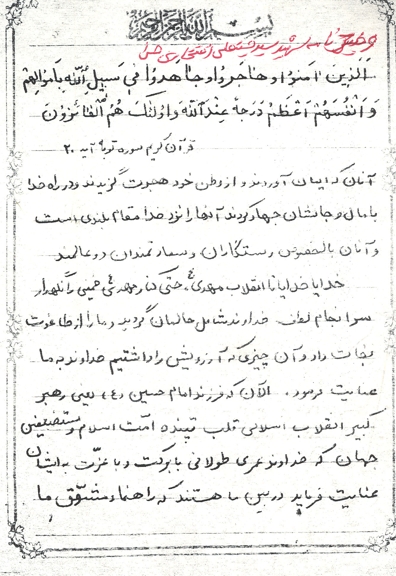 بسم الله الرحمن الرحیم
وصیت نامه شهید سید حسینعلی
الَّذینَ آمَنُوا وَ هاجَرُوا وَ جاهَدُوا فی سَبیلِ اللهِ بِاَموالِهِمْ
وَ اَنْفُسِهِمْ اَعْظَمُ دَرَجَةً عِنْدَ اللهِ وَ اُولئِکَ هُمُ الْفائِزُونَ
قرآن کریم سوره توبه آیه ۲۰
آنان که ایمان آوردند و از وطن خود هجرت گزیدند و در راه خدا
با مال و جانشان جهاد کردند آنها را نزد خدا مقام بلندی است
و آنان بالخصوص رستگاران و سعادتمندان دو عالمند
خدایا خدایا تا انقلاب مهدی حتی کنار مهدی خمینی را نگهدار
سرانجام لطف خداوند شامل حالمان گردید و ما را از طاغوت
نجات داد و آن چیزی که آرزویش را داشتیم خداوند به ما
عنایت فرمود. الآن که فرزند امام حسین (ع) یعنی رهبر
کبیر انقلاب اسلامی قلب تپنده امت اسلام و مستضعفین
جهان که خداوند عمری طولانی با برکت و با عزت به ایشان
عنایت فرماید در بین ما هستند که راهنما و مشوق ما